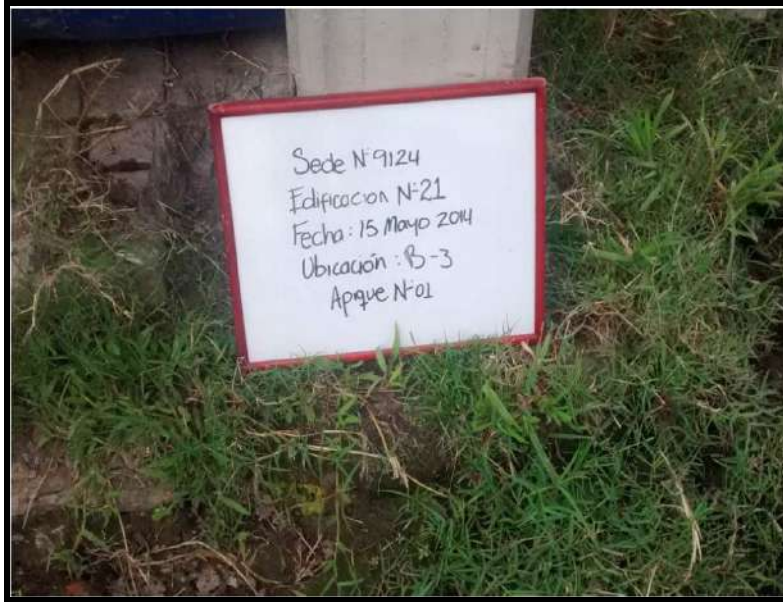 Sede N° 9124
Edificacion N°21
Fecha: 15 Mayo 2014
Ubicación: B-3
Apique N°01